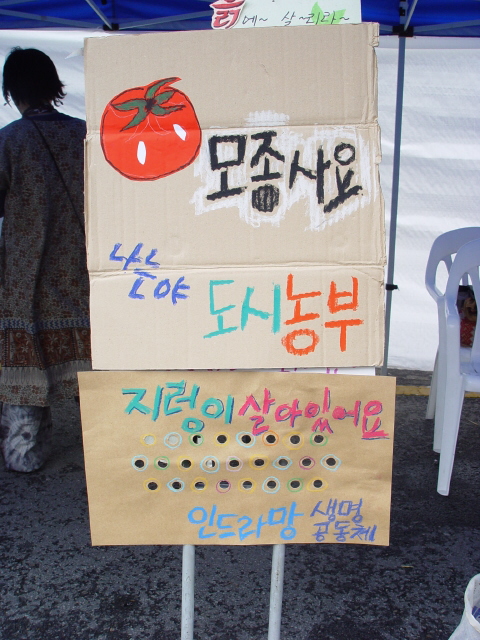 흙
에~ 살~리라~
모종사요
나는
노야
도시농부
지렁이 살아있어요
인드라망 생명
공동체